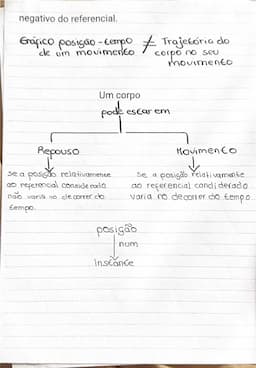 negativo do referencial.
Gráfico posição-tempo ≠ Trajetória do
de um movimento corpo no seu
movimento
Um corpo
pode estar em
Repouso
Movimento
Se a posição relativamente
ao referencial considerado
não varia no decorrer do
tempo.
Se a posição relativamente
ao referencial considerado
varia no decorrer do tempo
posição
num
instante